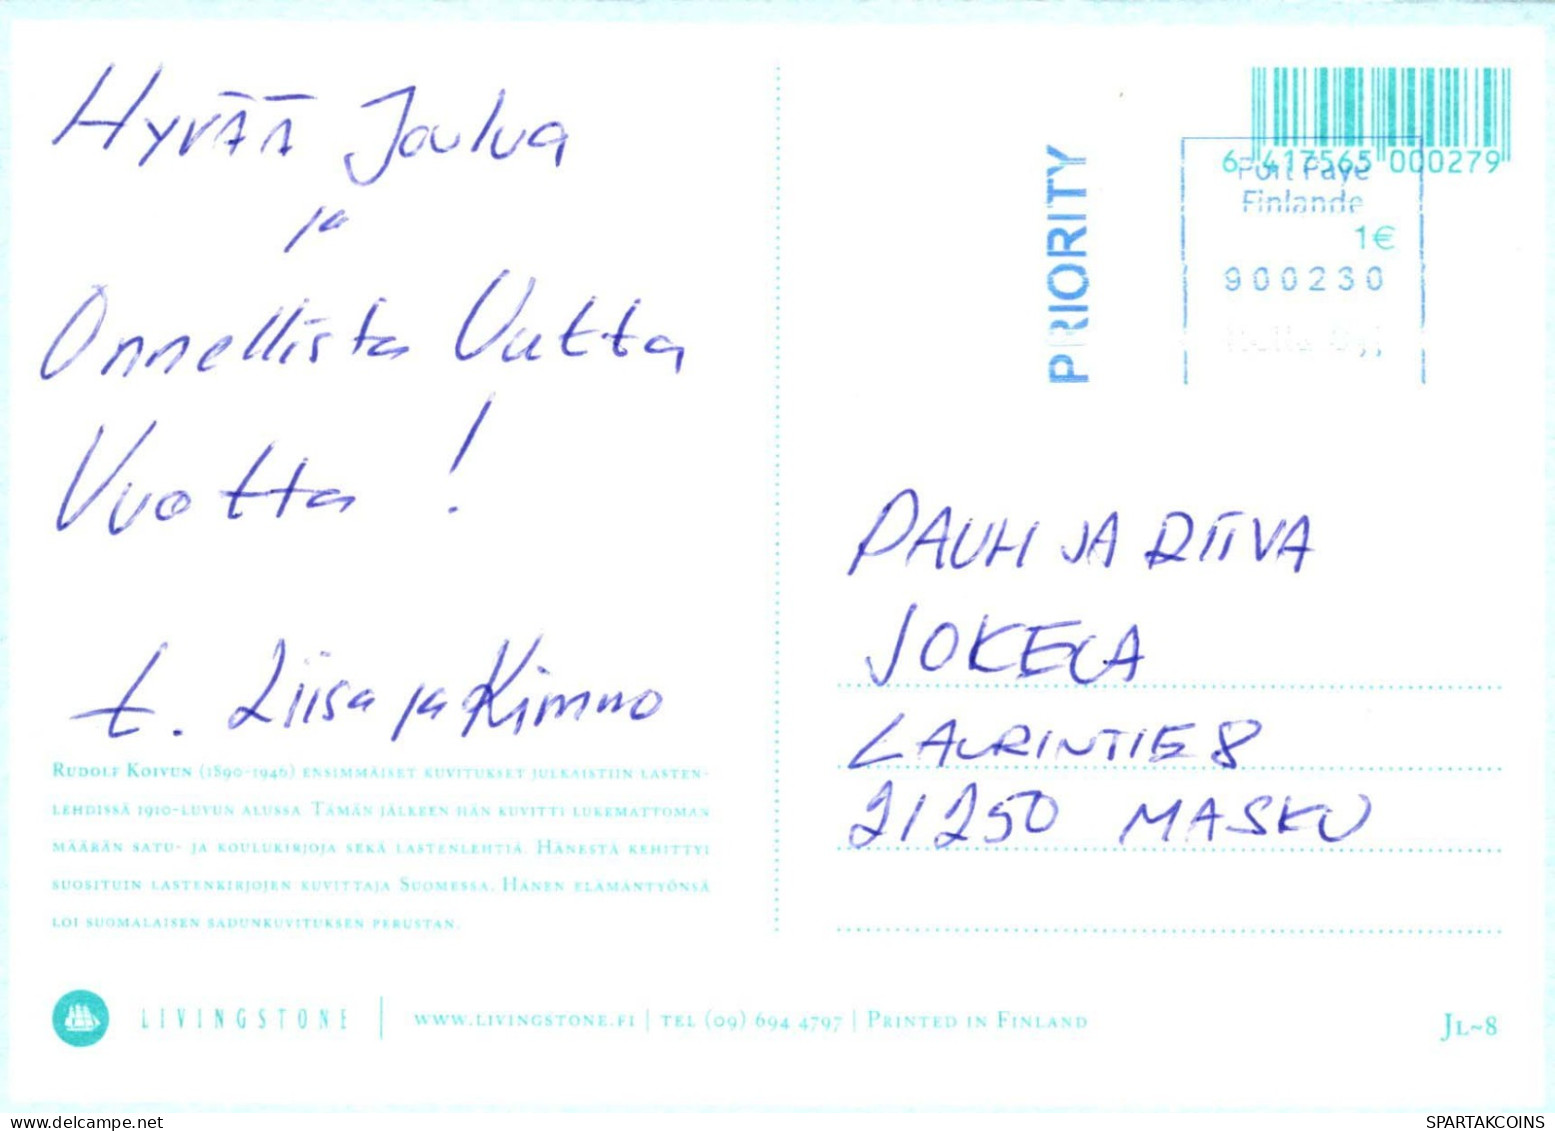 Hyvää Joulua
ja
Onnellista Uutta
Vuotta!
t. Liisa ja Kimmo
Rudolf Koivun (1890-1946) ensimmäiset kuvitukset julkaistiin lasten-
lehdissä 1910-luvun alussa. Tämän jälkeen hän kuvitti lukemattoman
määrän satu- ja koulukirjoja sekä lastenlehtiä. Hänestä kehittyi
suosituin lastenkirjojen kuvittaja Suomessa. Hänen elämäntyönsä
loi suomalaisen sadunkuvituksen perustan.
LIVINGSTONE | www.livingstone.fi | tel (09) 694 4797 | Printed in Finland
Jl~8
6 417565 000279
PRIORITY
Port Payé
Finlande
1€
900230
PAULI JA RITVA
JOKELA
LAURINTIE 8
21250 MASKU
SPARTAKCOINS